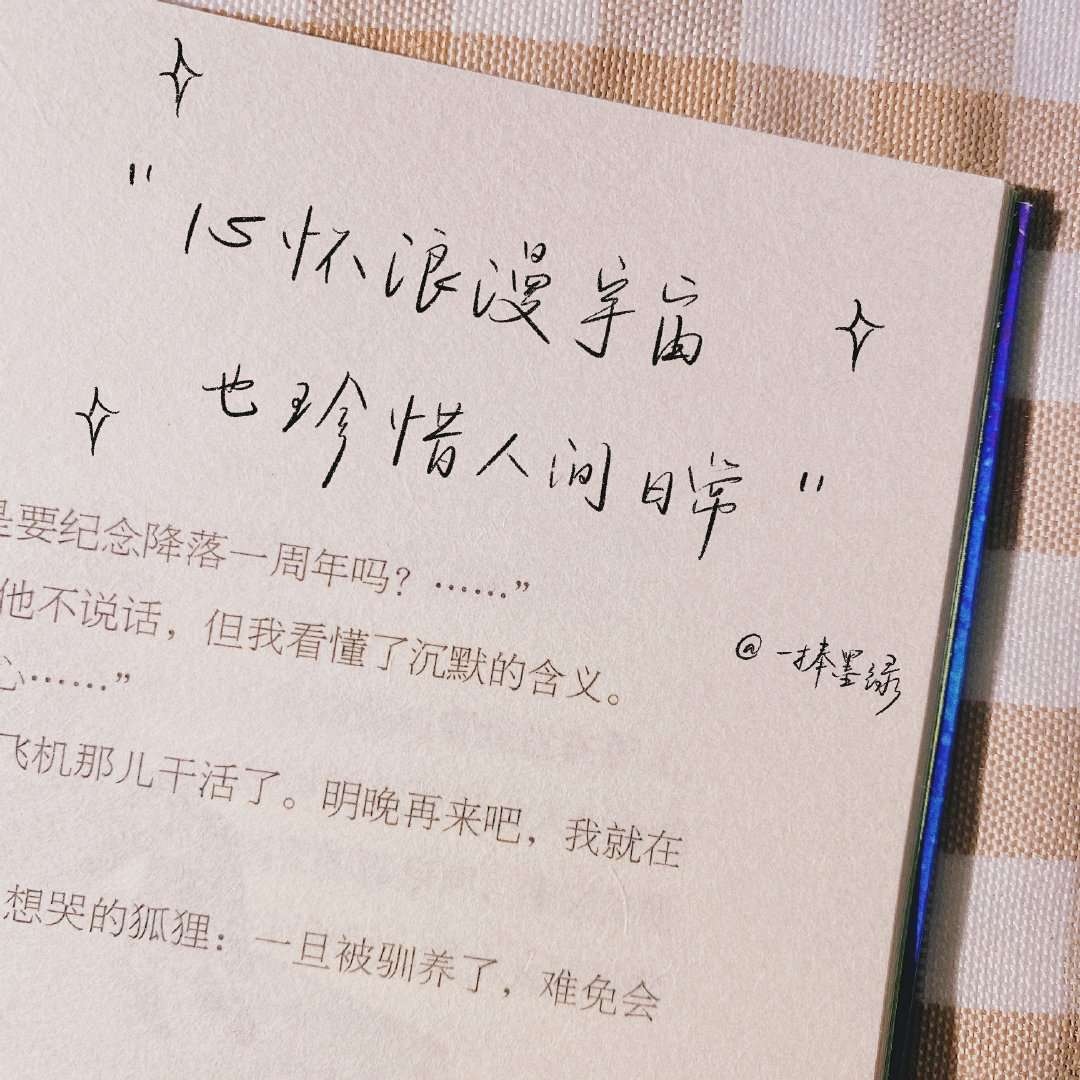 "心怀浪漫宇宙
也珍惜人间日常"
是要纪念降落一周年吗？……”
他不说话，但我看懂了沉默的含义。
@一捧墨绿
心……”
飞机那儿干活了。明晚再来吧，我就在
想哭的狐狸：一旦被驯养了，难免会